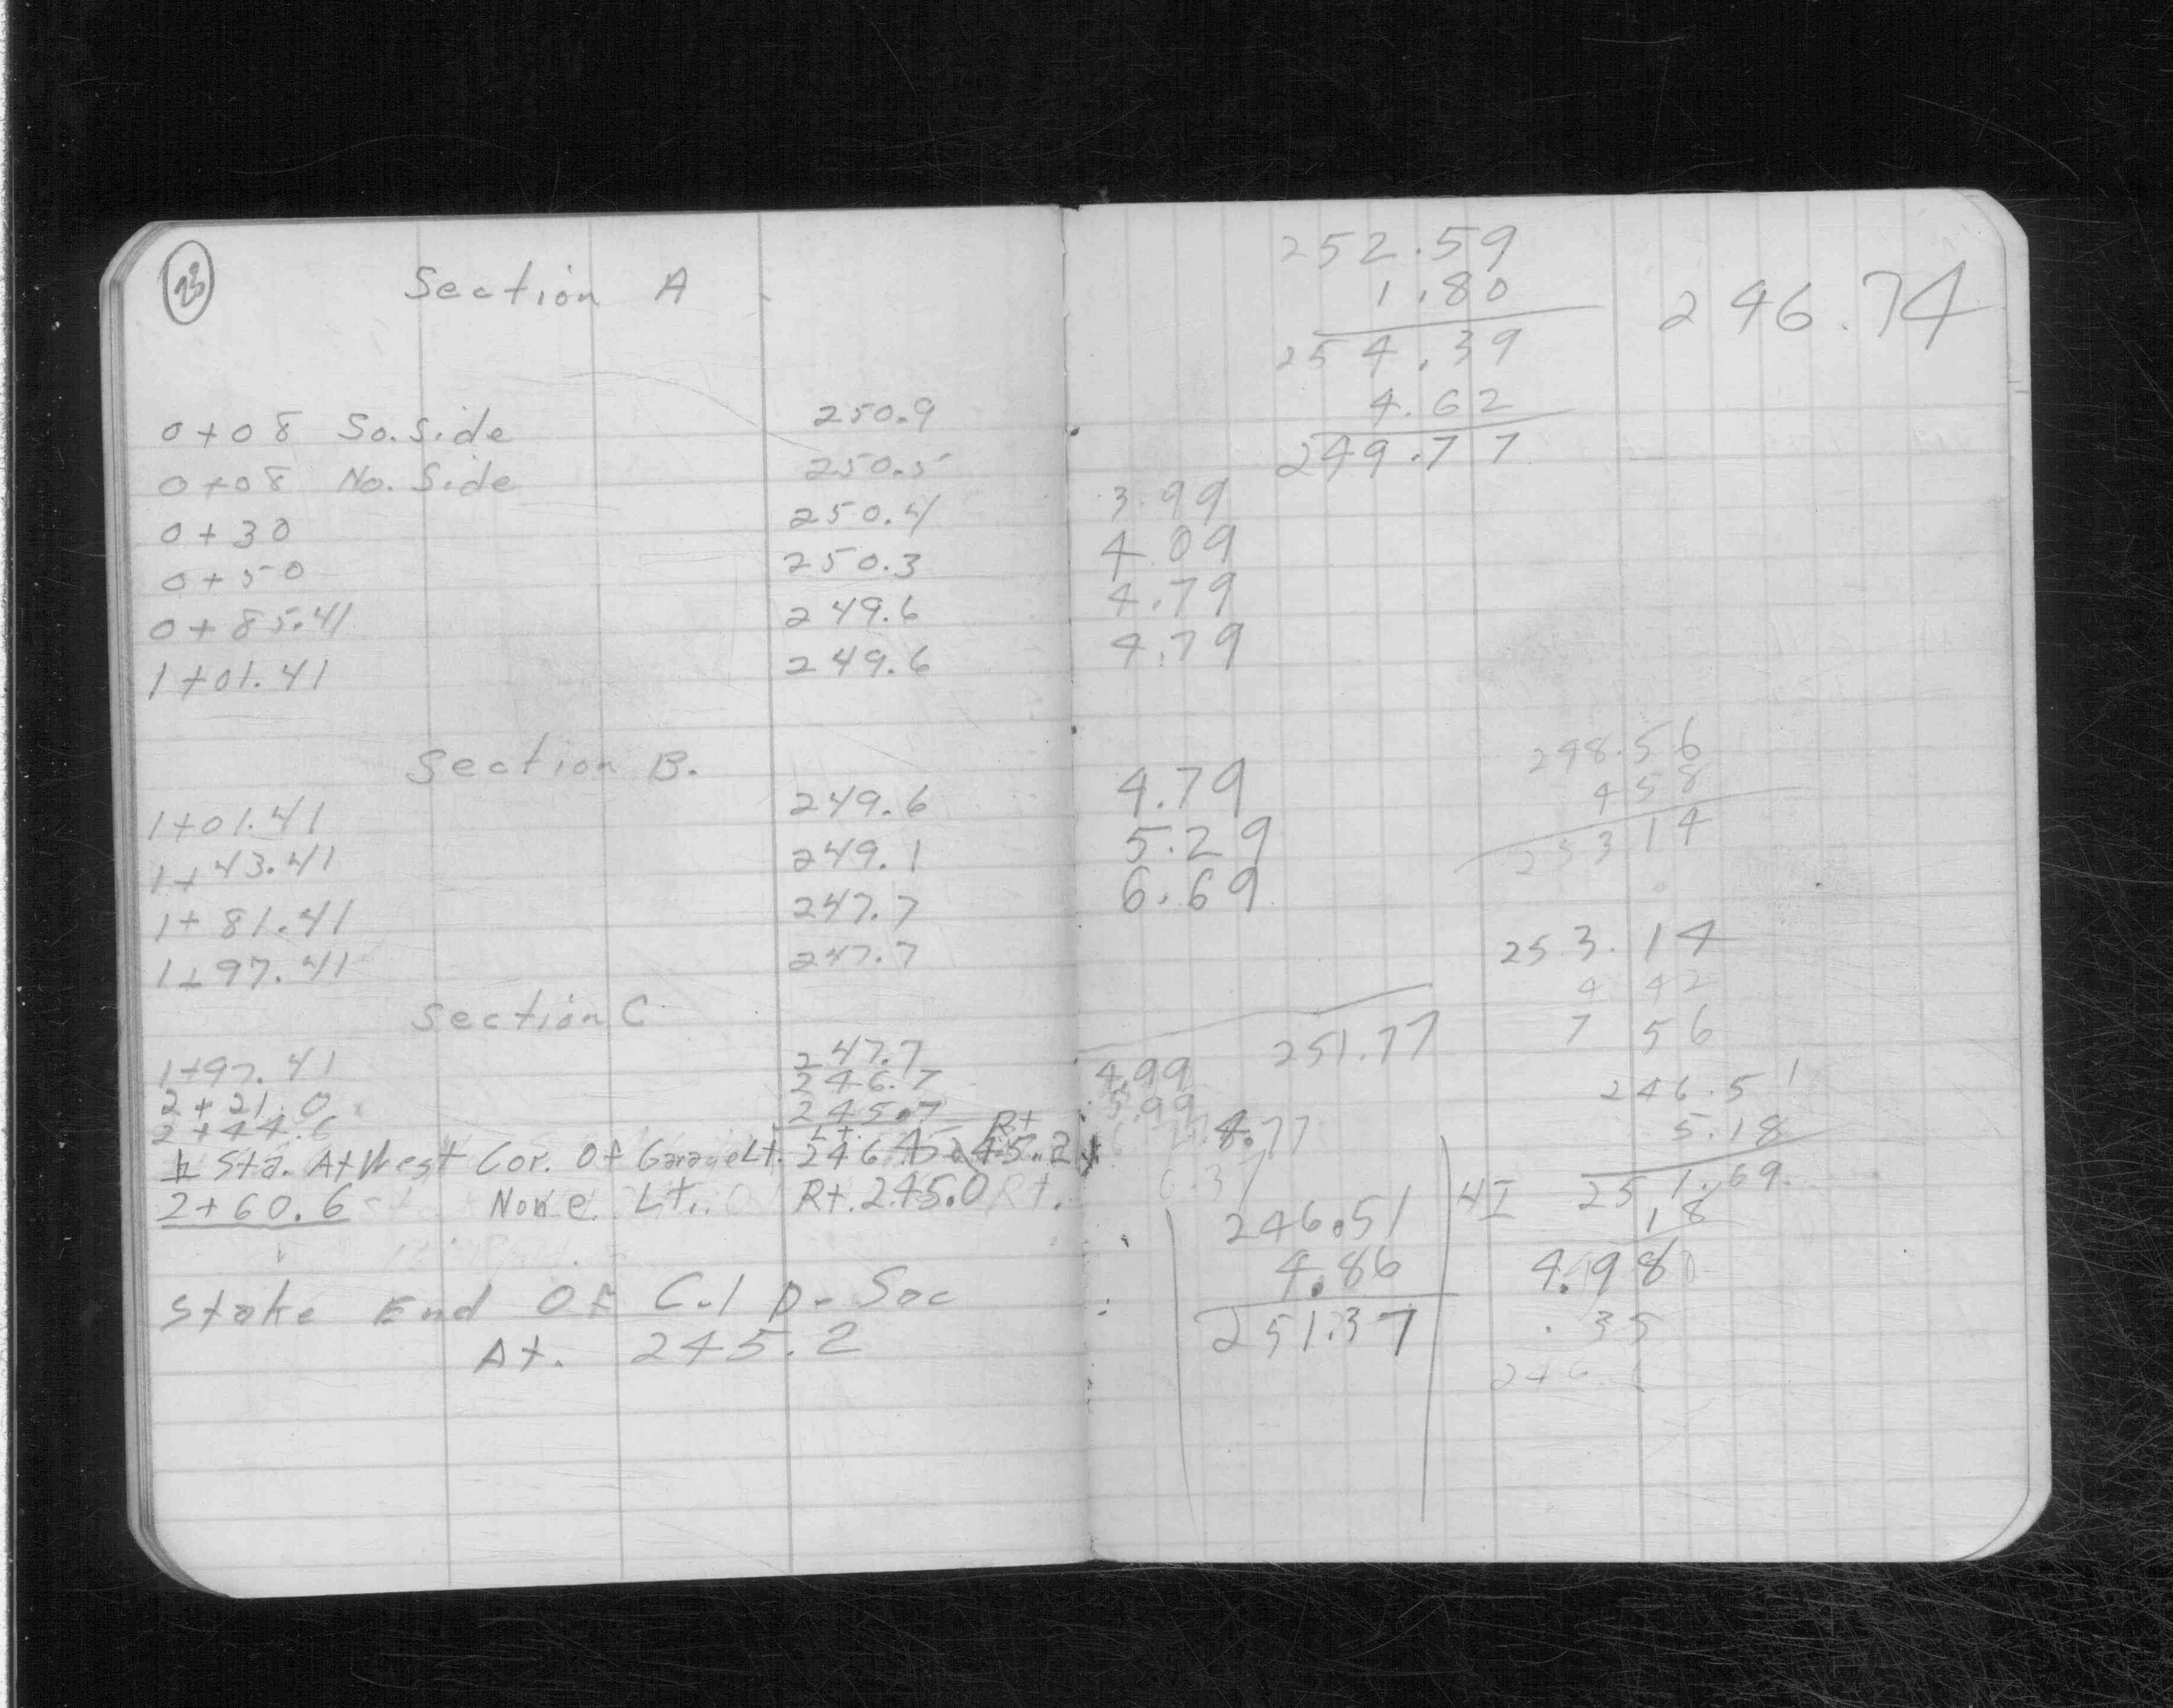 23
Section A
0+08 So. Side 250.9
0+08 No. Side 250.5
0+30 250.4
0+50 250.3
0+85.41 249.6
1+01.41 249.6
Section B.
1+01.41 249.6
1+43.41 249.1
1+81.41 247.7
1+97.41 247.7
Section C
1+97.41 247.7
2+21.0 246.7
2+44.6 245.7
Sta. At West Cor. Of Garage Lt. 246.45 Rt 45.2
2+60.6 None Lt. Rt. 245.0 Rt.
Stake End Of C.l D. Sac
At. 245.2
252.59
1.80
254.39
4.62
249.77
246.74
3.99
4.09
4.79
4.79
4.79
5.29
6.69
248.56
4 58
253 14
253.14
4 42
7 56
251.77
4.99
5.99
4.77
6.37
246.51
4.86
251.37
246.51
5.18
HI 251.69
.18
4.98
.35